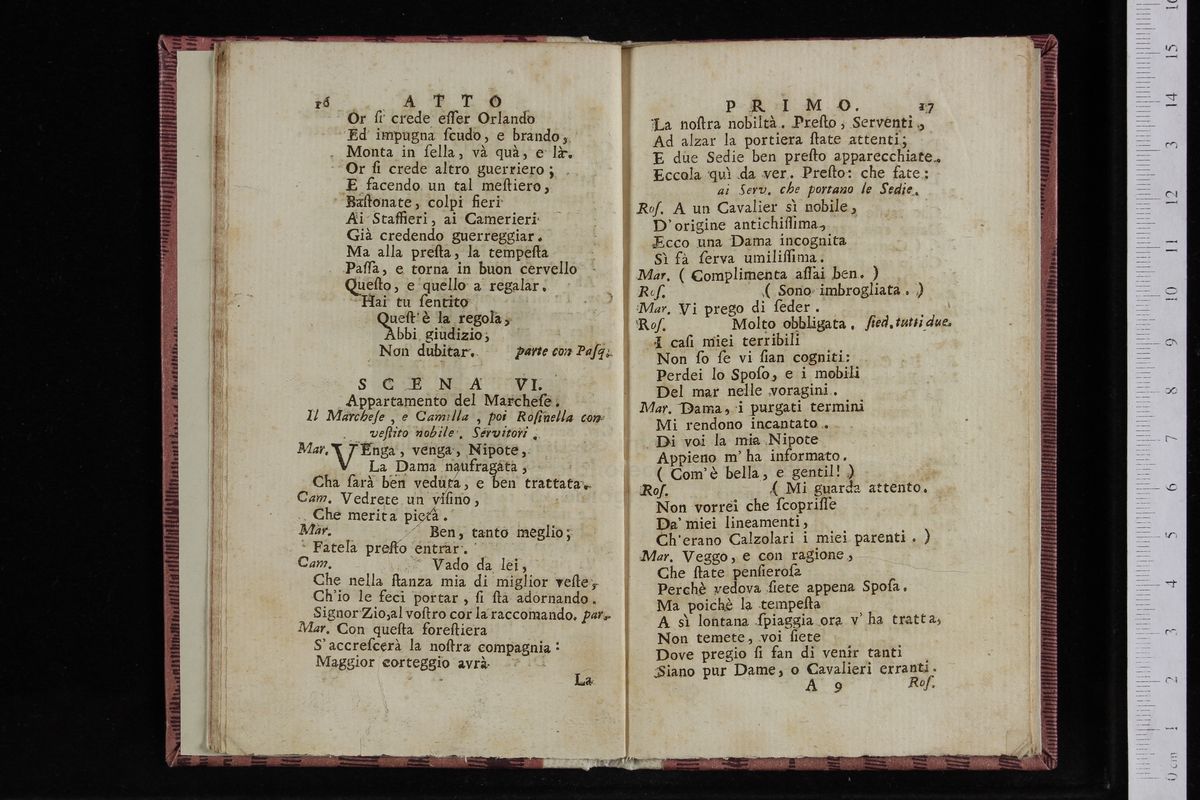 16 ATTO
Or ſi crede eſſer Orlando
Ed impugna ſcudo, e brando,
Monta in ſella, và quà, e là.
Or ſi crede altro guerriero;
E facendo un tal meſtiero,
Baſtonate, colpi fieri
Ai Staffieri, ai Camerieri
Già credendo guerreggiar.
Ma alla preſta, la tempeſta
Paſſa, e torna in buon cervello
Queſto, e quello a regalar.
Hai tu ſentito
Queſt'è la regola,
Abbi giudizio,
Non dubitar. parte con Paſq.
SCENA VI.
Appartamento del Marcheſe.
Il Marcheſe, e Camilla, poi Roſinella con
veſtito nobile. Servitori.
Mar. VEnga, venga, Nipote,
La Dama naufragata,
Cha ſarà ben veduta, e ben trattata.
Cam. Vedrete un viſino,
Che merita pietà.
Mar. Ben, tanto meglio;
Fatela preſto entrar.
Cam. Vado da lei,
Che nella ſtanza mia di miglior veſte,
Ch'io le feci portar, ſi ſta adornando.
Signor Zio, al voſtro cor la raccomando. par.
Mar. Con queſta foreſtiera
S'accreſcerà la noſtra compagnia:
Maggior corteggio avrà
La
PRIMO. 17
La noſtra nobiltà. Preſto, Serventi,
Ad alzar la portiera ſtate attenti;
E due Sedie ben preſto apparecchiate.
Eccola quì da ver. Preſto: che fate:
ai Serv. che portano le Sedie.
Roſ. A un Cavalier sì nobile,
D'origine antichiſſima,
Ecco una Dama incognita
Sì fà ſerva umiliſſima.
Mar. (Complimenta aſſai ben.)
Roſ. (Sono imbrogliata.)
Mar. Vi prego di ſeder.
Roſ. Molto obbligata. ſied. tutti due.
I caſi miei terribili
Non ſo ſe vi ſian cogniti:
Perdei lo Spoſo, e i mobili
Del mar nelle voragini.
Mar. Dama, i purgati termini
Mi rendono incantato.
Di voi la mia Nipote
Appieno m'ha informato.
(Com'è bella, e gentil!)
Roſ. (Mi guarda attento.
Non vorrei che ſcopriſſe
Da' miei lineamenti,
Ch'erano Calzolari i miei parenti.)
Mar. Veggo, e con ragione,
Che ſtate penſieroſa
Perchè vedova ſiete appena Spoſa.
Ma poichè la tempeſta
A sì lontana ſpiaggia ora v'ha tratta,
Non temete, voi ſiete
Dove pregio ſi fan di venir tanti
Siano pur Dame, o Cavalieri erranti.
A 9 Roſ.
0 cm 1 2 3 4 5 6 7 8 9 10 11 12 13 14 15 16